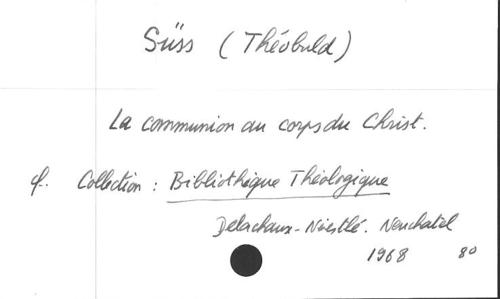 Süss (Théobald)
La communion au corps du Christ.
cf. Collection : Bibliothèque Théologique
Delachaux-Niestlé. Neuchatel
1968 80